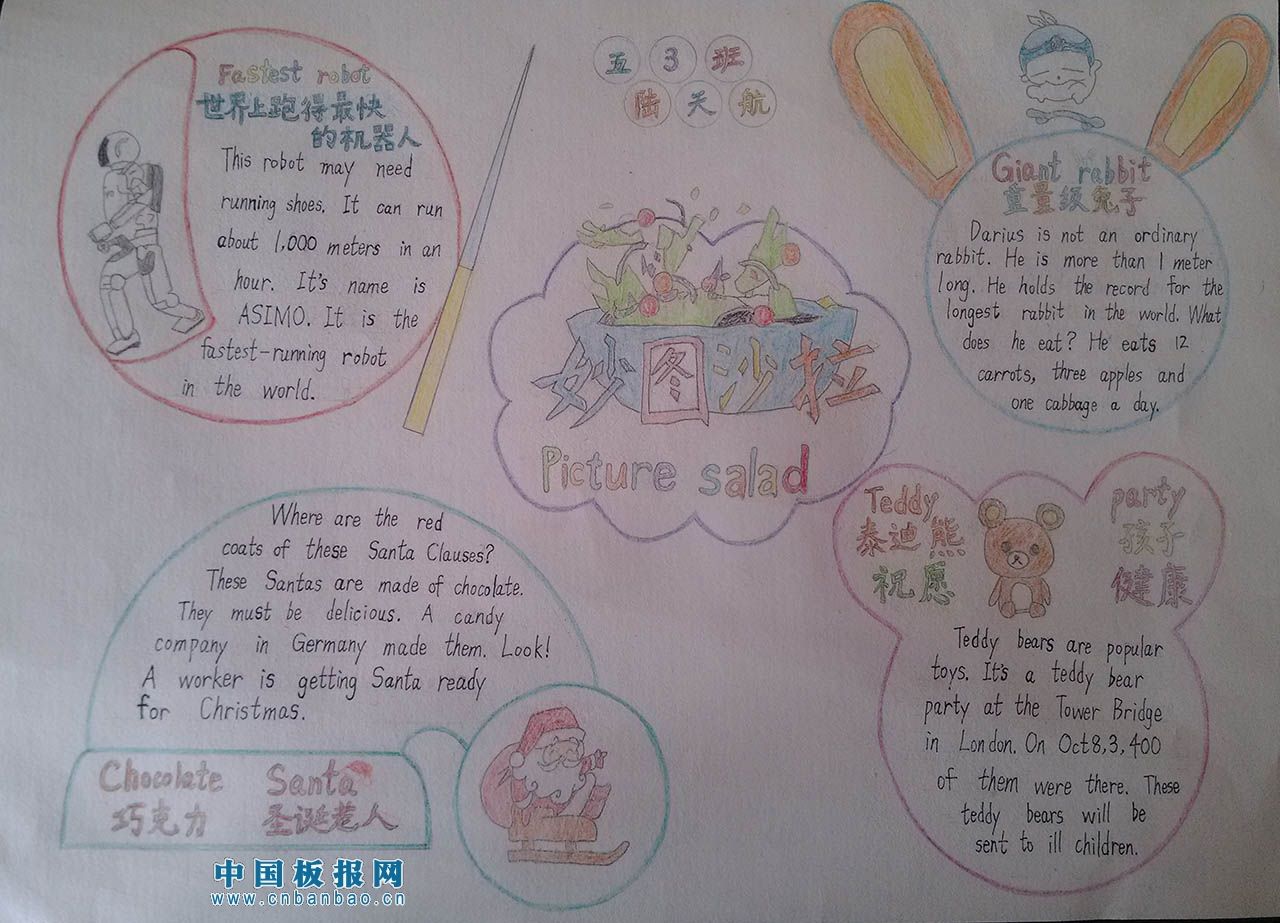 Fastest robot
世界上跑得最快
的机器人
This robot may need
running shoes. It can run
about 1,000 meters in an
hour. It's name is
ASIMO. It is the
fastest-running robot
in the world.
五 3 班
陆 天 航
妙图沙拉
Picture salad
Giant rabbit
重量级兔子
Darius is not an ordinary
rabbit. He is more than 1 meter
long. He holds the record for the
longest rabbit in the world. What
does he eat? He eats 12
carrots, three apples and
one cabbage a day.
Where are the red
coats of these Santa Clauses?
These Santas are made of chocolate.
They must be delicious. A candy
company in Germany made them. Look!
A worker is getting Santa ready
for Christmas.
Chocolate Santa
巧克力 圣诞惹人
Teddy
泰迪熊
祝愿
party
孩子
健康
Teddy bears are popular
toys. It's a teddy bear
party at the Tower Bridge
in London. On Oct8,3,400
of them were there. These
teddy bears will be
sent to ill children.
中国板报网
www.cnbanbao.cn